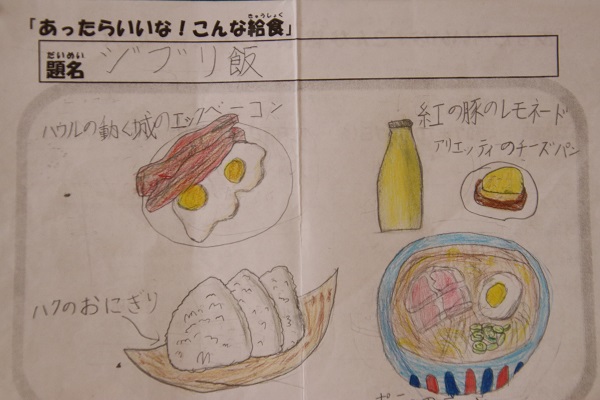 「あったらいいな！こんな給食」
きゅうしょく
だいめい
題名 ジブリ飯
ハウルの動く城のエッグベーコン
紅の豚のレモネード
アリエッティーのチーズパン
ハクのおにぎり